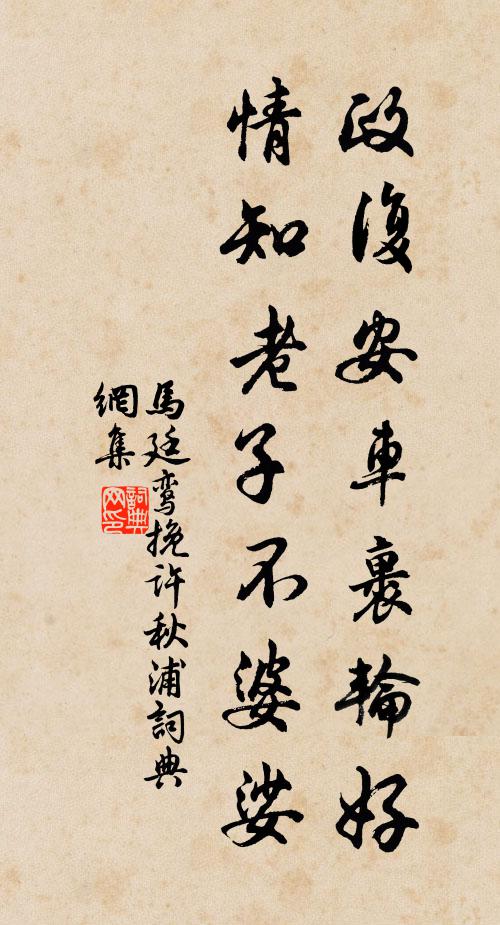 政復安車裹輪好
情知老子不婆娑
馬廷鸾挽許秋浦詞典
網集
詞典
网印